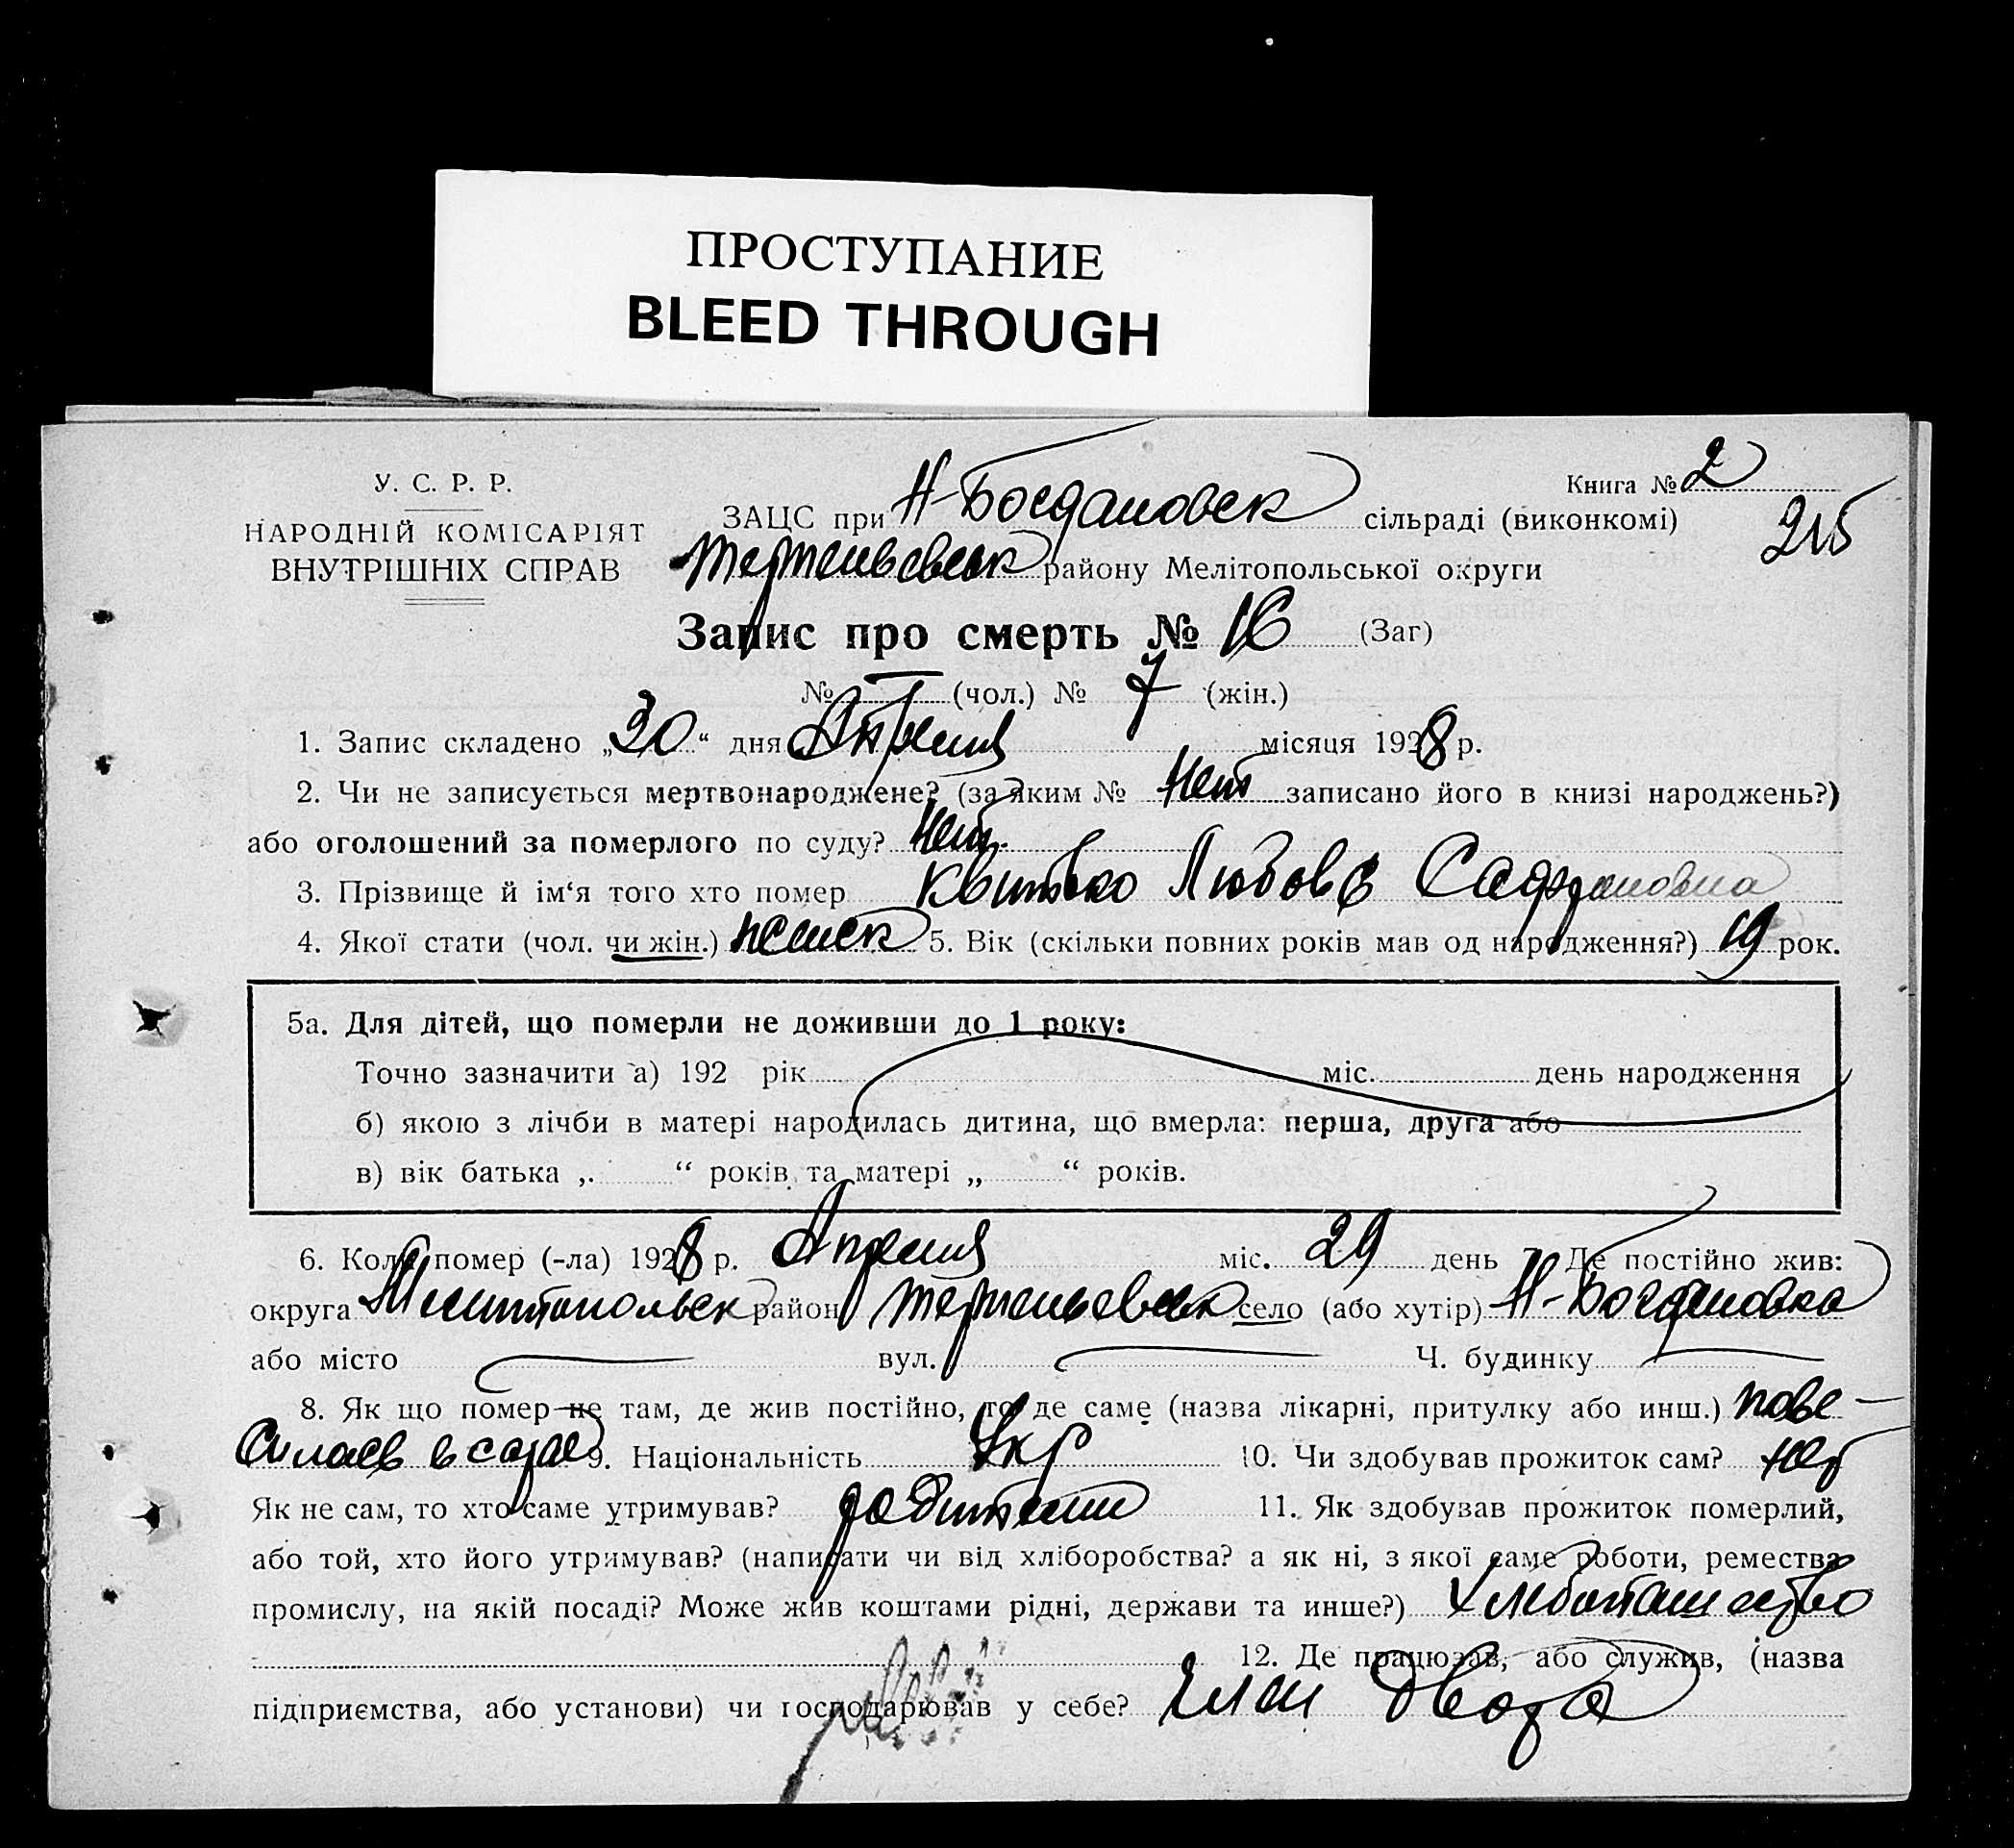 ПРОСТУПАНИЕ
BLEED THROUGH
У. С. Р. Р.
НАРОДНІЙ КОМІСАРІЯТ
ВНУТРІШНІХ СПРАВ
Книга № 2
215
ЗАЦС при Н-Богдановск сільраді (виконкомі)
Терпеньевск району Мелітопольської округи
Запис про смерть № 16 (Заг)
№ — (чол.) № 7 (жін.)
1. Запис складено „30“ дня Апреля місяця 1928 р.
2. Чи не записується мертвонароджене? (за яким № Нет записано його в книзі народжень?)
або оголошений за померлого по суду? Нет
3. Прізвище й ім‘я того хто помер Квитко Любовь
4. Якої стати (чол. чи жін.) женск 5. Вік (скільки повних років мав од народження?) 19 рок.
5а. Для дітей, що померли не доживши до 1 року:
Точно зазначити а) 192 рік міс. день народження
б) якою з лічби в матері народилась дитина, що вмерла: перша, друга або
в) вік батька „ “ років та матері „ “ років.
6. Коли помер (-ла) 1928 р. Апреля міс. 29 день 7. Де постійно жив:
округа Мелитопольск район Терпеньевск село (або хутір) Н-Богдановка
або місто — вул. — Ч. будинку —
8. Як що помер не там, де жив постійно, то де саме (назва лікарні, притулку або инш.) пове-
силась в сарае 9. Національність Укр 10. Чи здобував прожиток сам? нет
Як не сам, то хто саме утримував? родители 11. Як здобував прожиток померлий,
або той, хто його утримував? (написати чи від хліборобства? а як ні, з якої саме роботи, ремества
промислу, на якій посаді? Може жив коштами рідні, держави та инше?) Хлебопашество
12. Де працював, або служив, (назва
підприємства, або установи) чи господарював у себе? Член Двора